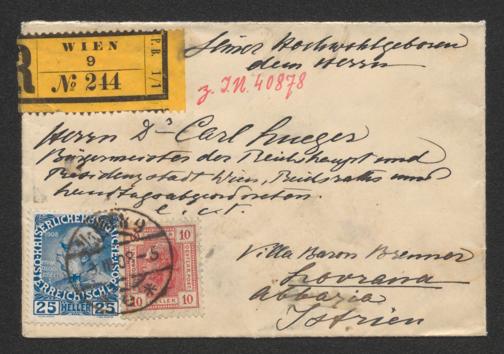 Seiner Hochwohlgeboren
dem Herrn
WIEN
9
R
№ 244
P.B. 1/1
z. I.N. 40878
Herrn Dr Carl Lueger
Bürgermeister der Reichshaupt und
Residenzstadt Wien, Reichsraths und
Landtagsabgeordneten
e. c. t.
Villa Baron Brenner
Lovrana
Abbazia
Istrien
25 HELLER 25
10 10
10 HELLER 10